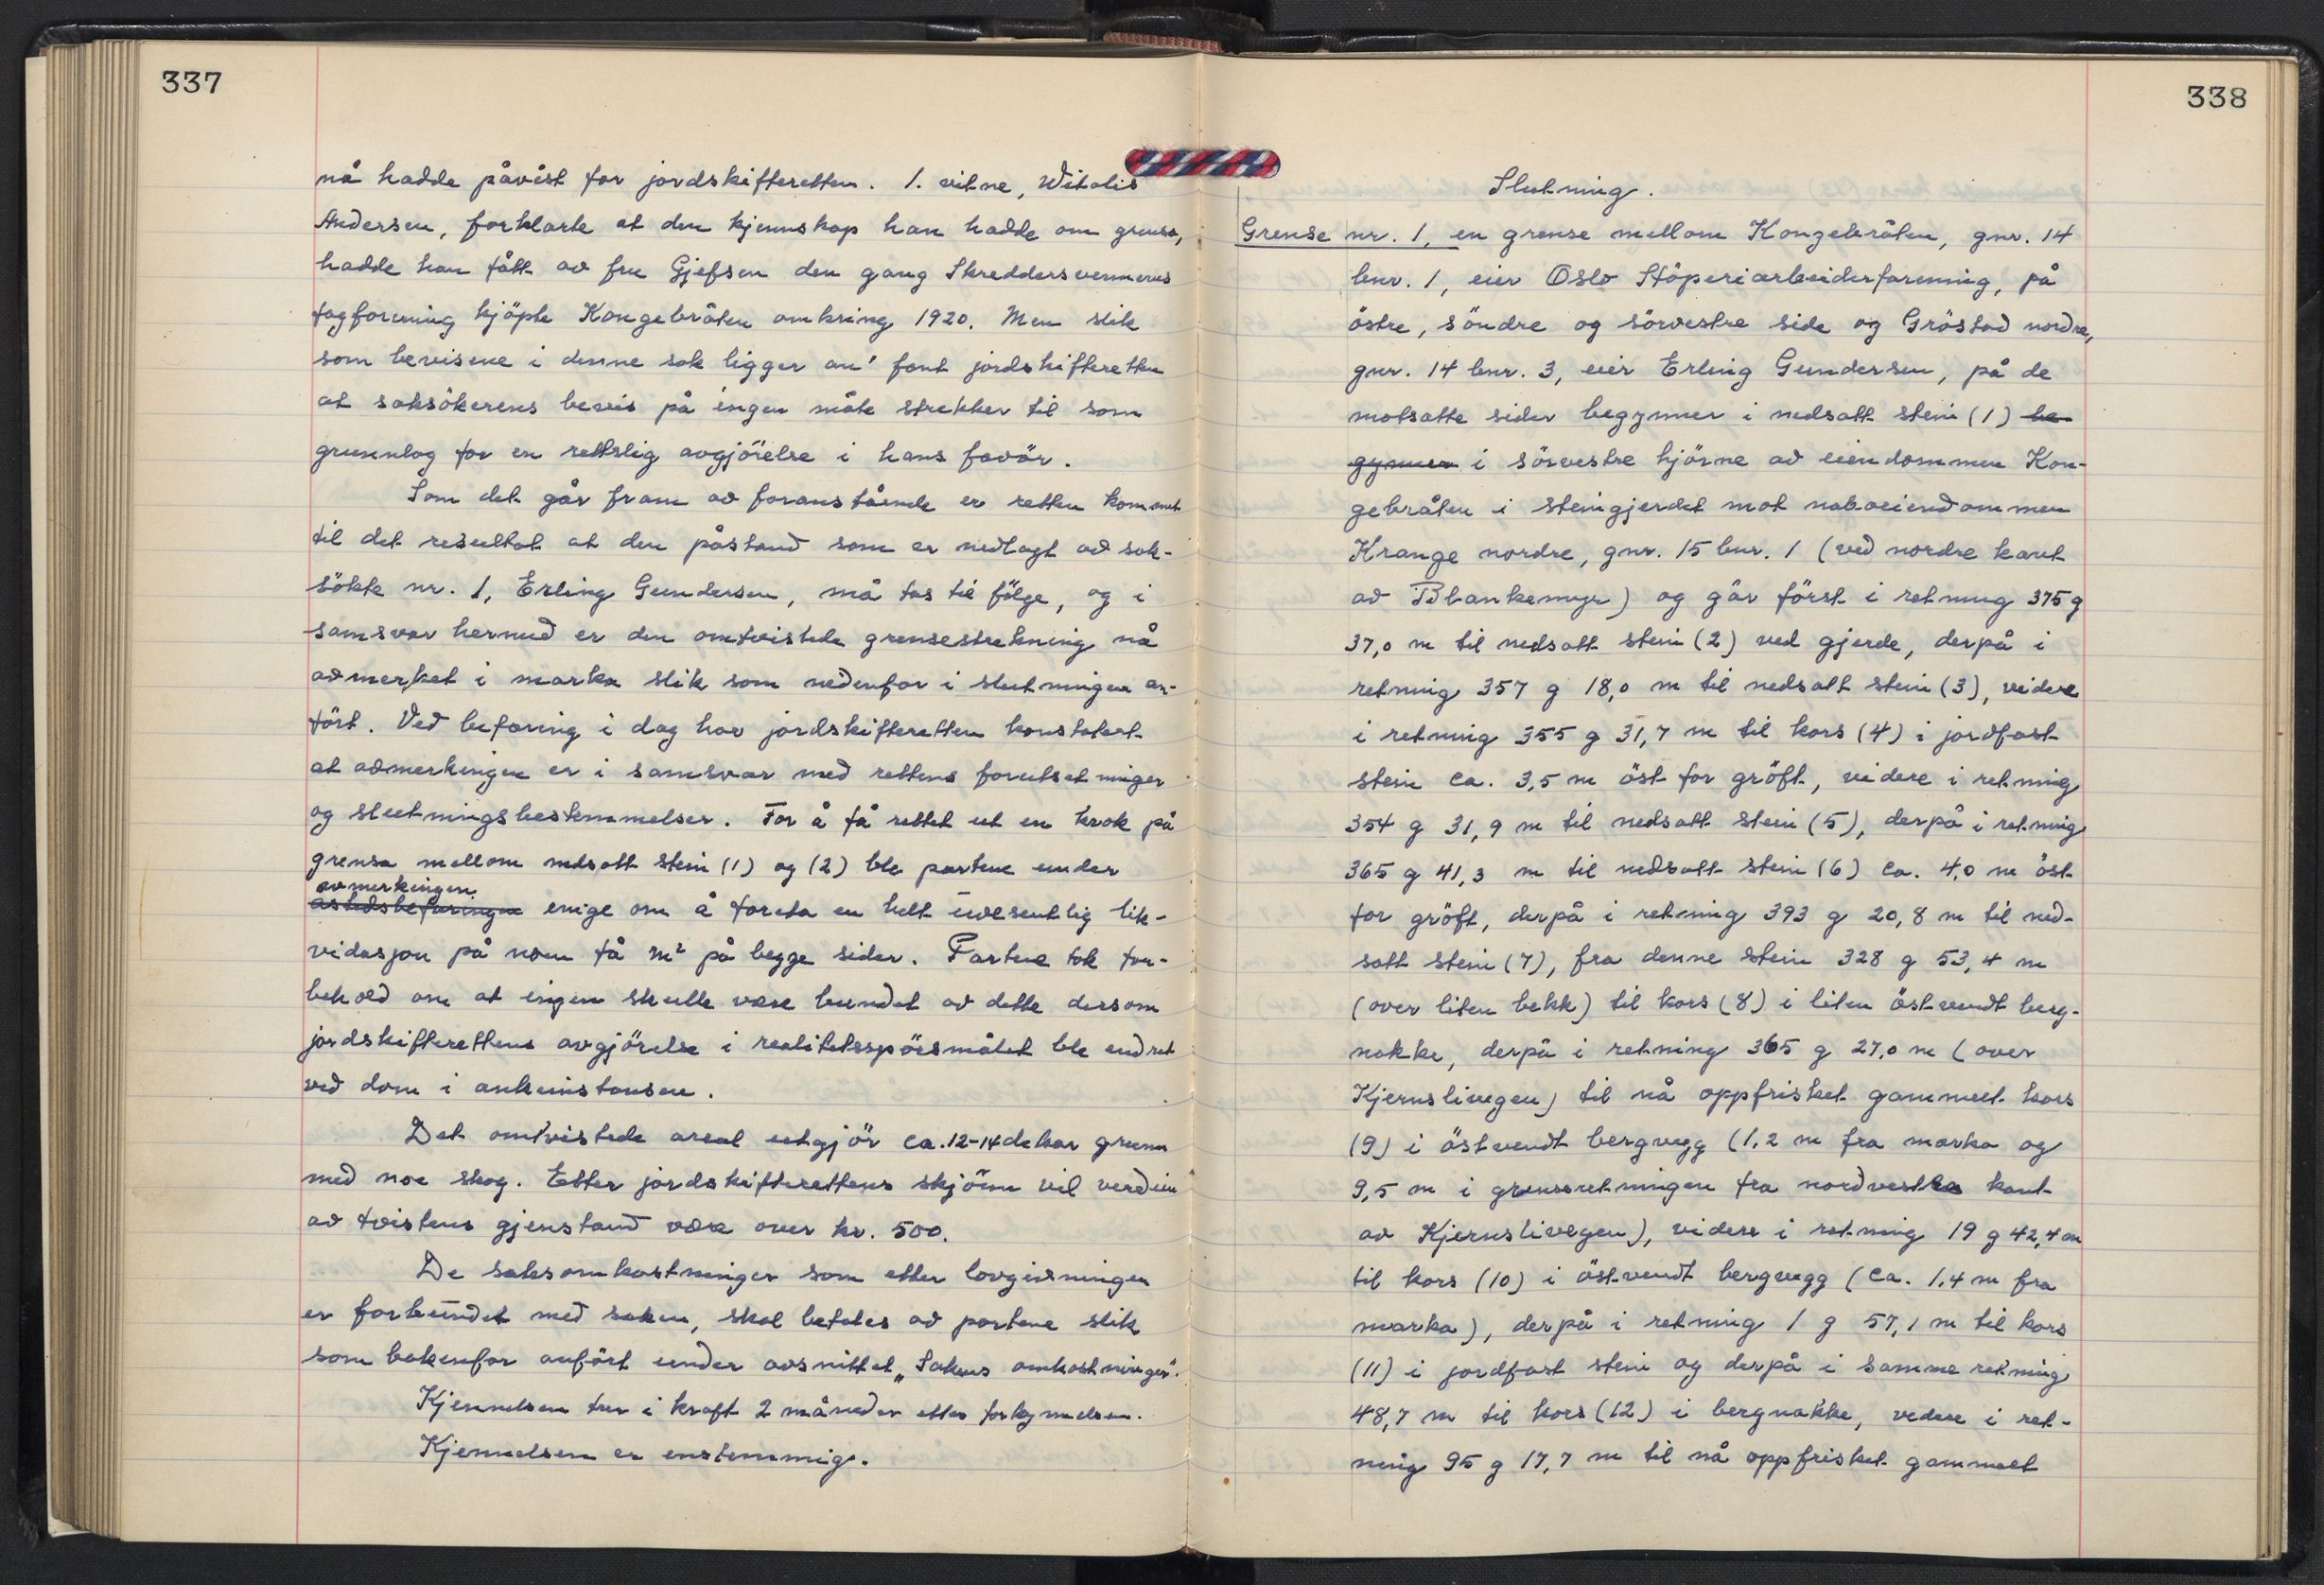 337
nå hadde påvist for jordskifteretten. 1. vitne, Witalis
Andersen, forklarte at den kjennskap han hadde om grensa,
hadde han fått av fru Gjefsen den gang Skreddersvennenes
fagforening kjöpte Kongebråten omkring 1920. Men slik
som bevisene i denne sak ligger an' fant jordskifteretten
at saksökerens bevis på ingen måte strekker til som
grunnlag for en rettslig avgjörelse i hans favör.
Som det går fram av foranstående er retten kommet
til det resultat at den påstand som er nedlagt av sak-
sökte nr. 1, Erling Gundersen, må tas til fölge, og i
samsvar hermed er den omtvistede grensestrekning nå
avmerket i marka slik som nedenfor i slutningen an-
fört. Ved befaring i dag har jordskifteretten konstatert
at avmerkingen er i samsvar med rettens forutsetninger
og slutningsbestemmelser. For å få rettet ut en krok på
grensa mellom nedsatt stein (1) og (2) ble partene under
avmerkingen
åstedsbefaringen enige om å foreta en helt uvesentlig lik-
vidasjon på noen få m² på begge sider. Partene tok for-
behold om at ingen skulle være bundet av dette dersom
jordskifterettens avgjörelse i realitetsspörsmålet ble endret
ved dom i ankeinstansen.
Det omtvistede areal utgjör ca. 12-14 dekar grunn
med noe skog. Etter jordskifterettens skjönn vil verdien
av tvistens gjenstand være over kr. 500.
De saksomkostninger som etter lovgivningen
er forbundet med saken, skal betales av partene slik
som bakenfor anfört under avsnittet „Sakens omkostninger".
Kjennelsen trer i kraft 2 måneder etter forkynnelsen.
Kjennelsen er enstemmig.
338
Slutning.
Grense nr. 1, en grense mellom Kongebråten, gnr. 14
bnr. 1, eier Oslo Stöperiarbeiderforening, på
östre, söndre og sörvestre side og Gröstad nordre,
gnr. 14 bnr. 3, eier Erling Gundersen, på de
motsatte sider begynner i nedsatt stein (1) be-
gynner i sörvestre hjörne av eiendommen Kon-
gebråten i steingjerdet mot naboeiendommen
Krange nordre, gnr. 15 bnr. 1 (ved nordre kant
av Blankemyr) og går först i retning 375 g
37,0 m til nedsatt stein (2) ved gjerde, derpå i
retning 357 g 18,0 m til nedsatt stein (3), videre
i retning 355 g 31,7 m til kors (4) i jordfast
stein ca. 3,5 m öst for gröft, videre i retning
354 g 31,9 m til nedsatt stein (5), derpå i retning
365 g 41,3 m til nedsatt stein (6) ca. 4,0 m öst
for gröft, derpå i retning 393 g 20,8 m til ned-
satt stein (7), fra denne stein 328 g 53,4 m
(over liten bekk) til kors (8) i liten östvendt berg-
nakke, derpå i retning 365 g 27,0 m (over
Kjernslivegen) til nå oppfrisket gammelt kors
(9) i östvendt bergvegg (1,2 m fra marka og
9,5 m i grenseretningen fra nordvestre kant
av Kjernslivegen), videre i retning 19 g 42,4 m
til kors (10) i östvendt bergvegg (ca. 1,4 m fra
marka), derpå i retning 1 g 57,1 m til kors
(11) i jordfast stein og derpå i samme retning
48,7 m til kors (12) i bergnakke, videre i ret-
ning 95 g 17,7 m til nå oppfrisket gammelt